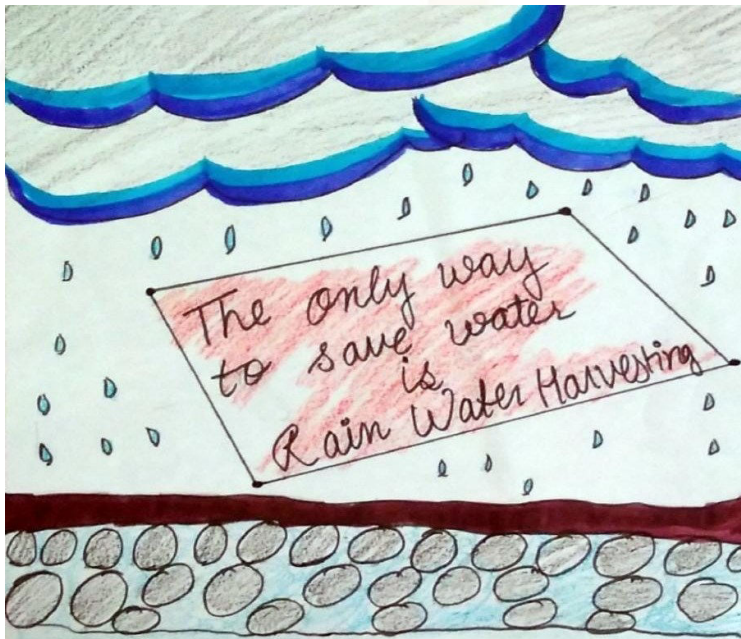 The only way
to save water
is
Rain Water Harvesting